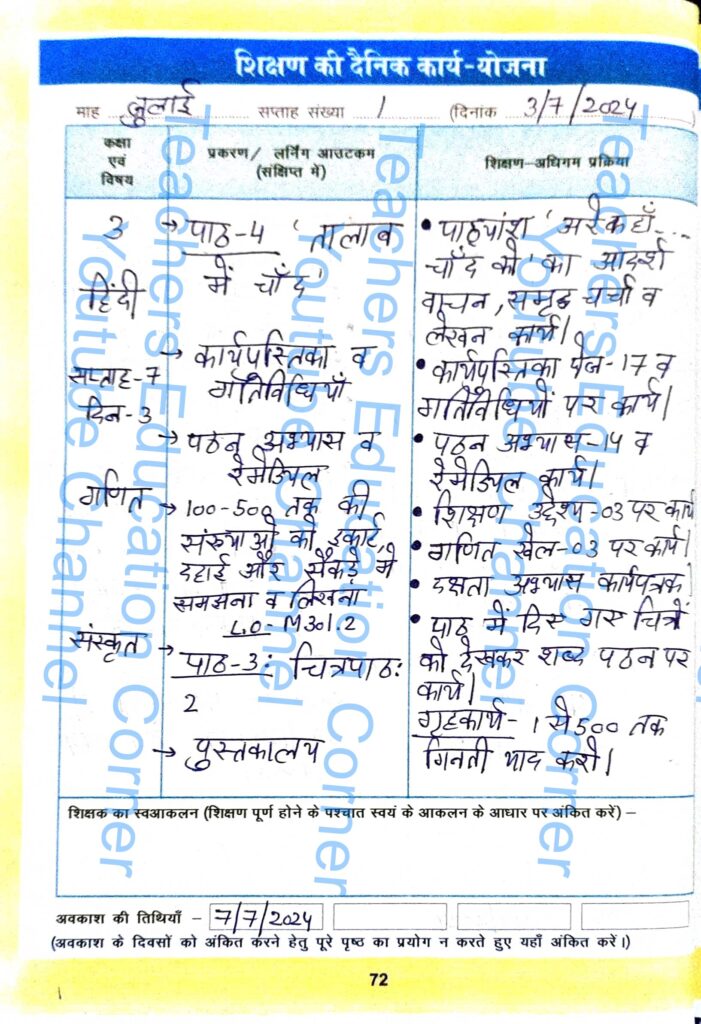 शिक्षण की दैनिक कार्य-योजना
माह जुलाई सप्ताह संख्या 1 (दिनांक 3/7/2024
कक्षा एवं विषय
प्रकरण/ लर्निंग आउटकम (संक्षिप्त में)
शिक्षण-अधिगम प्रक्रिया
3
हिंदी
सप्ताह-7
दिन-3
गणित
संस्कृत
→ पाठ-4 'तालाब
में चाँद'
→ कार्यपुस्तिका व
गतिविधियाँ
→ पठन अभ्यास व
रेमेडियल
→ 100-500 तक की
संख्याओं को इकाई,
दहाई और सैकड़े में
समझना व लिखना
L.O- M301.2
→ पाठ-3: चित्रपाठः
2
→ पुस्तकालय
• पाठ्यांश 'अरे कहाँ...
चाँद को' का आदर्श
वाचन, समूह चर्चा व
लेखन कार्य।
• कार्यपुस्तिका पेज-17 व
गतिविधियों पर कार्य।
• पठन अभ्यास-14 व
रेमेडियल कार्य।
• शिक्षण उद्देश्य-03 पर कार्य
• गणित खेल-03 पर कार्य।
• दक्षता अभ्यास कार्यपत्रक
• पाठ में दिए गए चित्रों
को देखकर शब्द पठन पर
कार्य।
गृहकार्य- 1 से 500 तक
गिनती याद करो।
शिक्षक का स्वआकलन (शिक्षण पूर्ण होने के पश्चात स्वयं के आकलन के आधार पर अंकित करें) –
अवकाश की तिथियाँ – 7/7/2024
(अवकाश के दिवसों को अंकित करने हेतु पूरे पृष्ठ का प्रयोग न करते हुए यहाँ अंकित करें।)
72
Teachers Education Corner
Youtube Channel
Teachers Education Corner
Youtube Channel
Teachers Education Corner
Youtube Channel